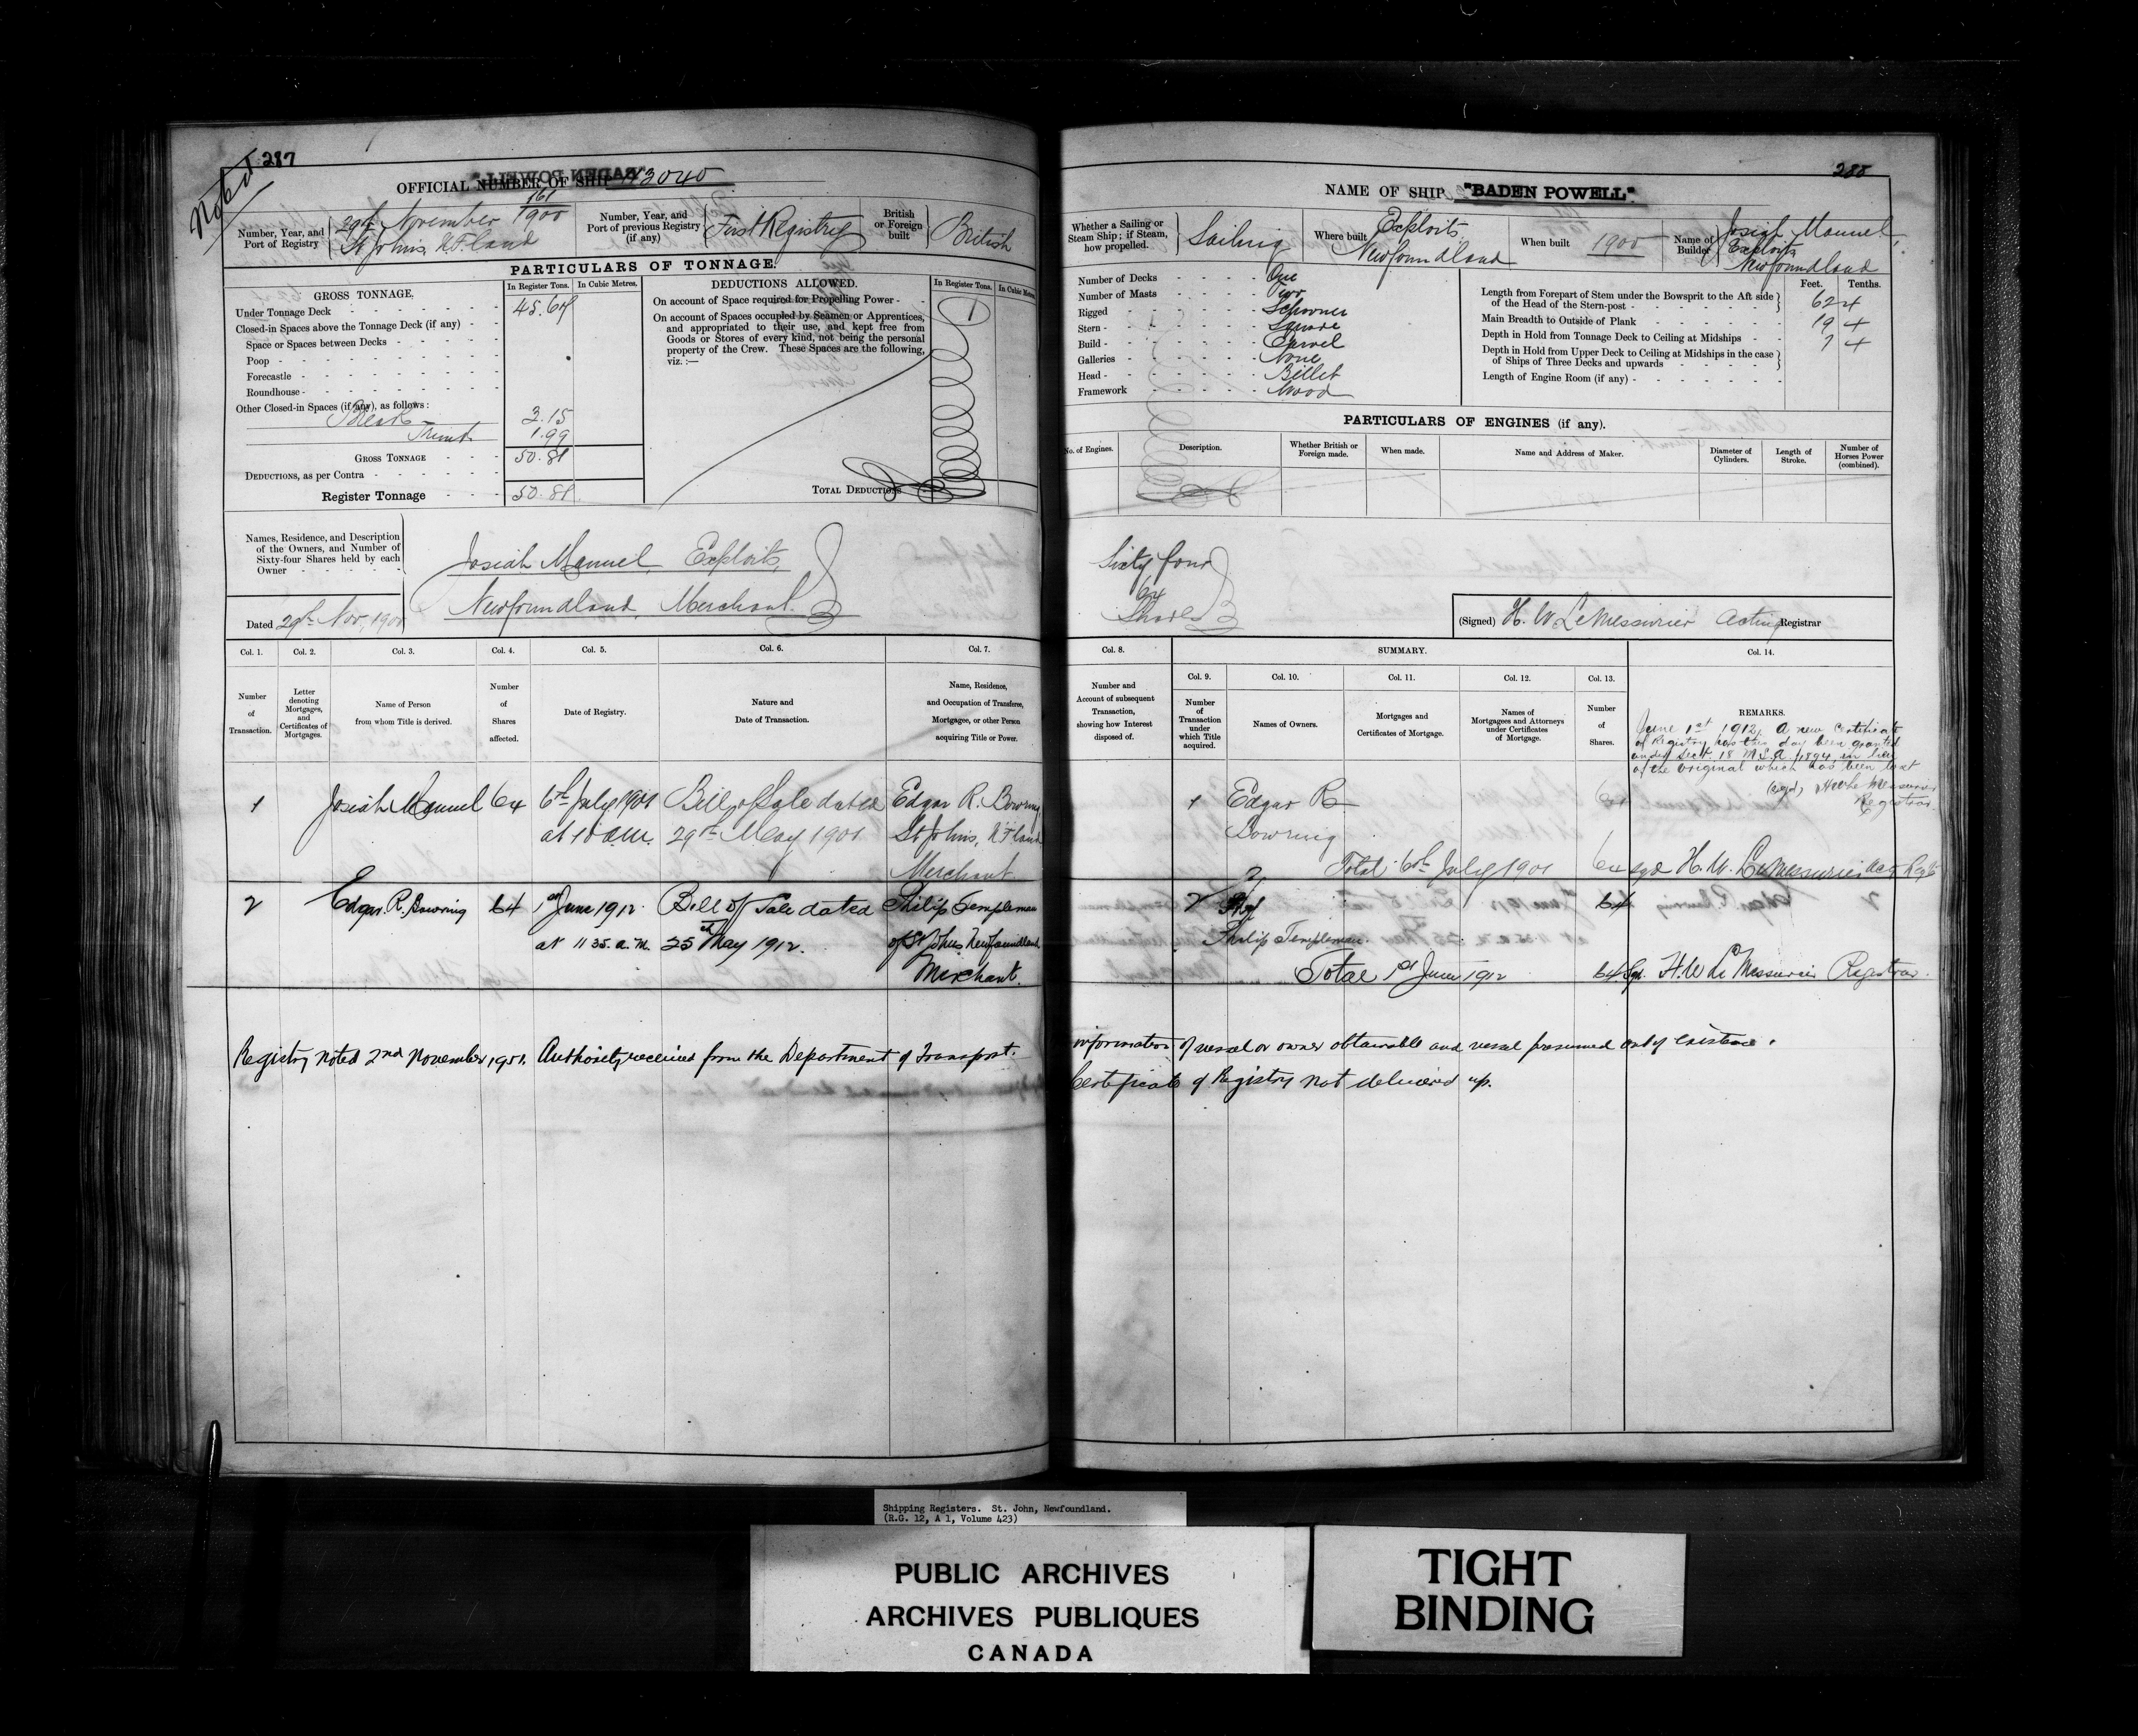 Noted
287
OFFICIAL NUMBER OF SHIP 113040
Number, Year, and Port of Registry
161
29th November 1900
St Johns, N.F.land
Number, Year, and Port of previous Registry (if any)
First Registry
British or Foreign built
British
PARTICULARS OF TONNAGE.
GROSS TONNAGE.
In Register Tons. In Cubic Metres.
Under Tonnage Deck
Closed-in Spaces above the Tonnage Deck (if any)
Space or Spaces between Decks
Poop
Forecastle
Roundhouse
Other Closed-in Spaces (if any), as follows:
Break 3.15
1.99
GROSS TONNAGE
DEDUCTIONS, as per Contra
Register Tonnage
DEDUCTIONS ALLOWED.
In Register Tons. In Cubic Metres
On account of Space required for Propelling Power
On account of Spaces occupied by Seamen or Apprentices,
and appropriated to their use, and kept free from
Goods or Stores of every kind, not being the personal
property of the Crew. These Spaces are the following,
viz.:—
TOTAL DEDUCTIONS
Names, Residence, and Description
of the Owners, and Number of
Sixty-four Shares held by each
Owner
Josiah Manuel, Exploits,
Newfoundland, Merchant.
Dated 29th Nov, 1900
Col. 1. Col. 2. Col. 3. Col. 4. Col. 5. Col. 6. Col. 7.
Number of Transaction.
Letter denoting Mortgages, and Certificates of Mortgages.
Name of Person from whom Title is derived.
Number of Shares affected.
Date of Registry.
Nature and Date of Transaction.
Name, Residence, and Occupation of Transferee, Mortgagee, or other Person acquiring Title or Power.
1 Josiah Manuel 64 6th July 1901 Bill of Sale dated Edgar R. Bowring
at 10 a.m. 29th May 1901 St Johns, N.F.land
Merchant
2 Edgar. R. Bowring 64 1st June 1912 Bill of Sale dated Philip Templeman
at 11 35. a.m. 25th May 1912. of St Johns Newfoundland
Merchant.
Registry noted 2nd November 1951. Authority received from the Department of Transport.
288
NAME OF SHIP "BADEN POWELL"
Whether a Sailing or Steam Ship; if Steam, how propelled.
Sailing
Where built
Exploits
Newfoundland
When built 1900
Name of Builder
Josiah Manuel,
Exploits,
Newfoundland
Number of Decks One
Number of Masts Two
Rigged Schooner
Stern Square
Build Carvel
Galleries None
Head Billet
Framework Wood
Feet. Tenths.
Length from Forepart of Stem under the Bowsprit to the Aft side
of the Head of the Stern-post 62 4
Main Breadth to Outside of Plank 19 4
Depth in Hold from Tonnage Deck to Ceiling at Midships 7 4
Depth in Hold from Upper Deck to Ceiling at Midships in the case
of Ships of Three Decks and upwards
Length of Engine Room (if any)
PARTICULARS OF ENGINES (if any).
No. of Engines.
Description.
Whether British or Foreign made.
When made.
Name and Address of Maker.
Diameter of Cylinders.
Length of Stroke.
Number of Horses Power (combined).
Sixty four
64
Shares
(Signed) H. W LeMessurier Acting Registrar
Col. 8. SUMMARY. Col. 14.
Col. 9. Col. 10. Col. 11. Col. 12. Col. 13.
Number and Account of subsequent Transaction, showing how Interest disposed of.
Number of Transaction under which Title acquired.
Names of Owners.
Mortgages and Certificates of Mortgage.
Names of Mortgagees and Attorneys under Certificates of Mortgage.
Number of Shares.
REMARKS.
June 1st 1912. A new Certificate
of Registry has this day been granted
under Sect. 18 M.S.A. 1894 in lieu
of the original which has been lost
(sgd) H W Le Messurier
Registrar.
1 Edgar R 64
Bowring
2 Total 6th July 1901 64 sgd H. W. LeMessurier
2 64
Philip Templeman.
Total 1st June 1912 64 Sgd. H. W Le Messurier Registrar.
information of vessel or owner obtainable and vessel presumed out of existence.
Certificate of Registry not delivered up.
Shipping Registers. St. John, Newfoundland.
(R.G. 12, A 1, Volume 423)
PUBLIC ARCHIVES
ARCHIVES PUBLIQUES
CANADA
TIGHT
BINDING